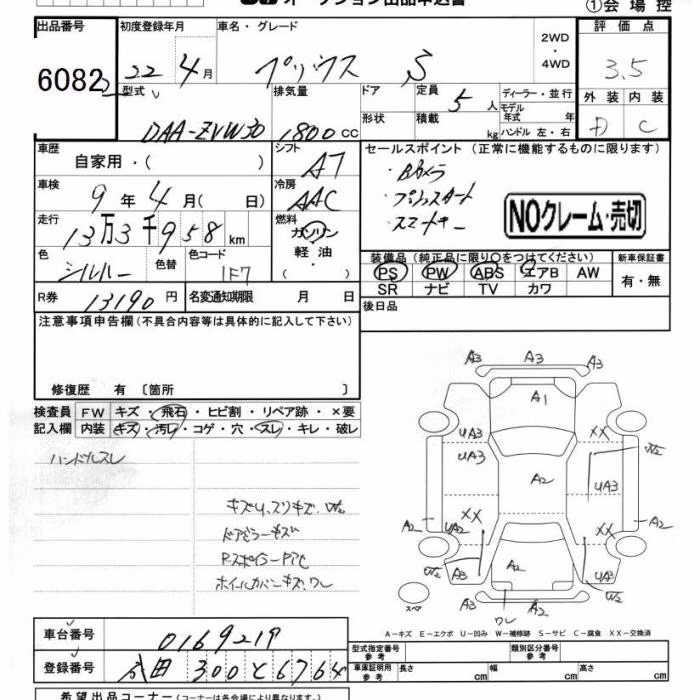 オークション出品申込書
①会場控
出品番号 初度登録年月 車名・グレード 2WD・4WD 評価点
6082 22年4月 プリウス S 3.5
型式 排気量 ドア 定員 5人 ディーラー・並行 外装 内装
DAA-ZVW30 1800cc 形状 積載 kg モデル年式 年 ハンドル 左・右 D C
車歴 自家用・( ) シフト AT セールスポイント(正常に機能するものに限ります)
・Bカメラ
車検 9年4月( 日) 冷房 AAC ・プッシュスタート
・スマートキー
NOクレーム・売切
走行 13万3千958km 燃料 ガソリン・軽油・
色 シルバー 色替 色コード 1F7
装備品(純正品に限り○をつけてください) 新車保証書
PS PW ABS エアB AW 有・無
SR ナビ TV カワ
R券 13190円 名変通知期限 月 日 後日品
注意事項申告欄(不具合内容等は具体的に記入して下さい)
修復歴 有〔箇所 〕
検査員 FW キズ・飛石・ヒビ割・リペア跡・×要
記入欄 内装 キズ・汚レ・コゲ・穴・スレ・キレ・破レ
ハンドルスレ
キズU、スリキズ、W2
ドアミラーキズ
RスポイラーP
ホイルカバーキズ、ワレ
A3 A3 A3
A1
UA3 XX W2
UA3
A2 UA3
A2 UA2 XX XX A2
W2 A3 A2 UA3 W2
スペア
A3 A3
ワレ
A-キズ E-エクボ U-凹み W-補修跡 S-サビ C-腐食 XX-交換済
車台番号
登録番号 300 6764
型式指定番号 参考 類別区分番号 参考
車庫証明用 参考 長さ cm 幅 cm 高さ cm
希望出品コーナー(コーナーは各会場により異なります。)